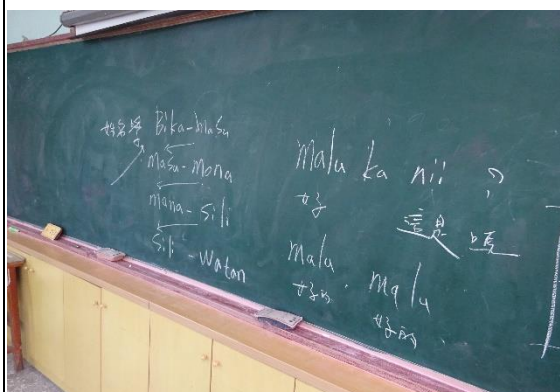 姓名 Bika-masu
masu-mona
mana-sili
sili-watan
malu ka nii ?
好 這是嗎
malu . malu
好的 好的